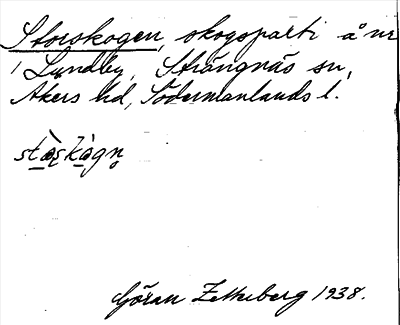 Storskogen, skogsparti å nr
1 Lundby, Strängnäs sn,
Åkers hd, Södermanlands l.
Göran Zetterberg 1938.